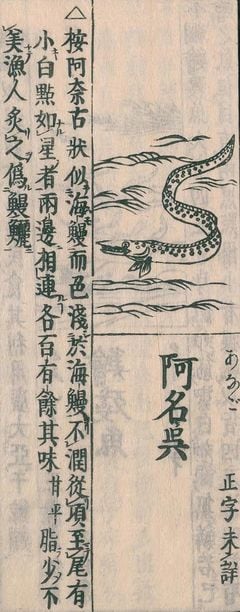 あなご
正字未詳
阿名呉
△按阿奈古狀似海鰻而色淺於海鰻不潤從項至尾有
小白點如星者兩邊相連各百有餘其味甘平脂少不
美漁人炙之僞鰻鱺